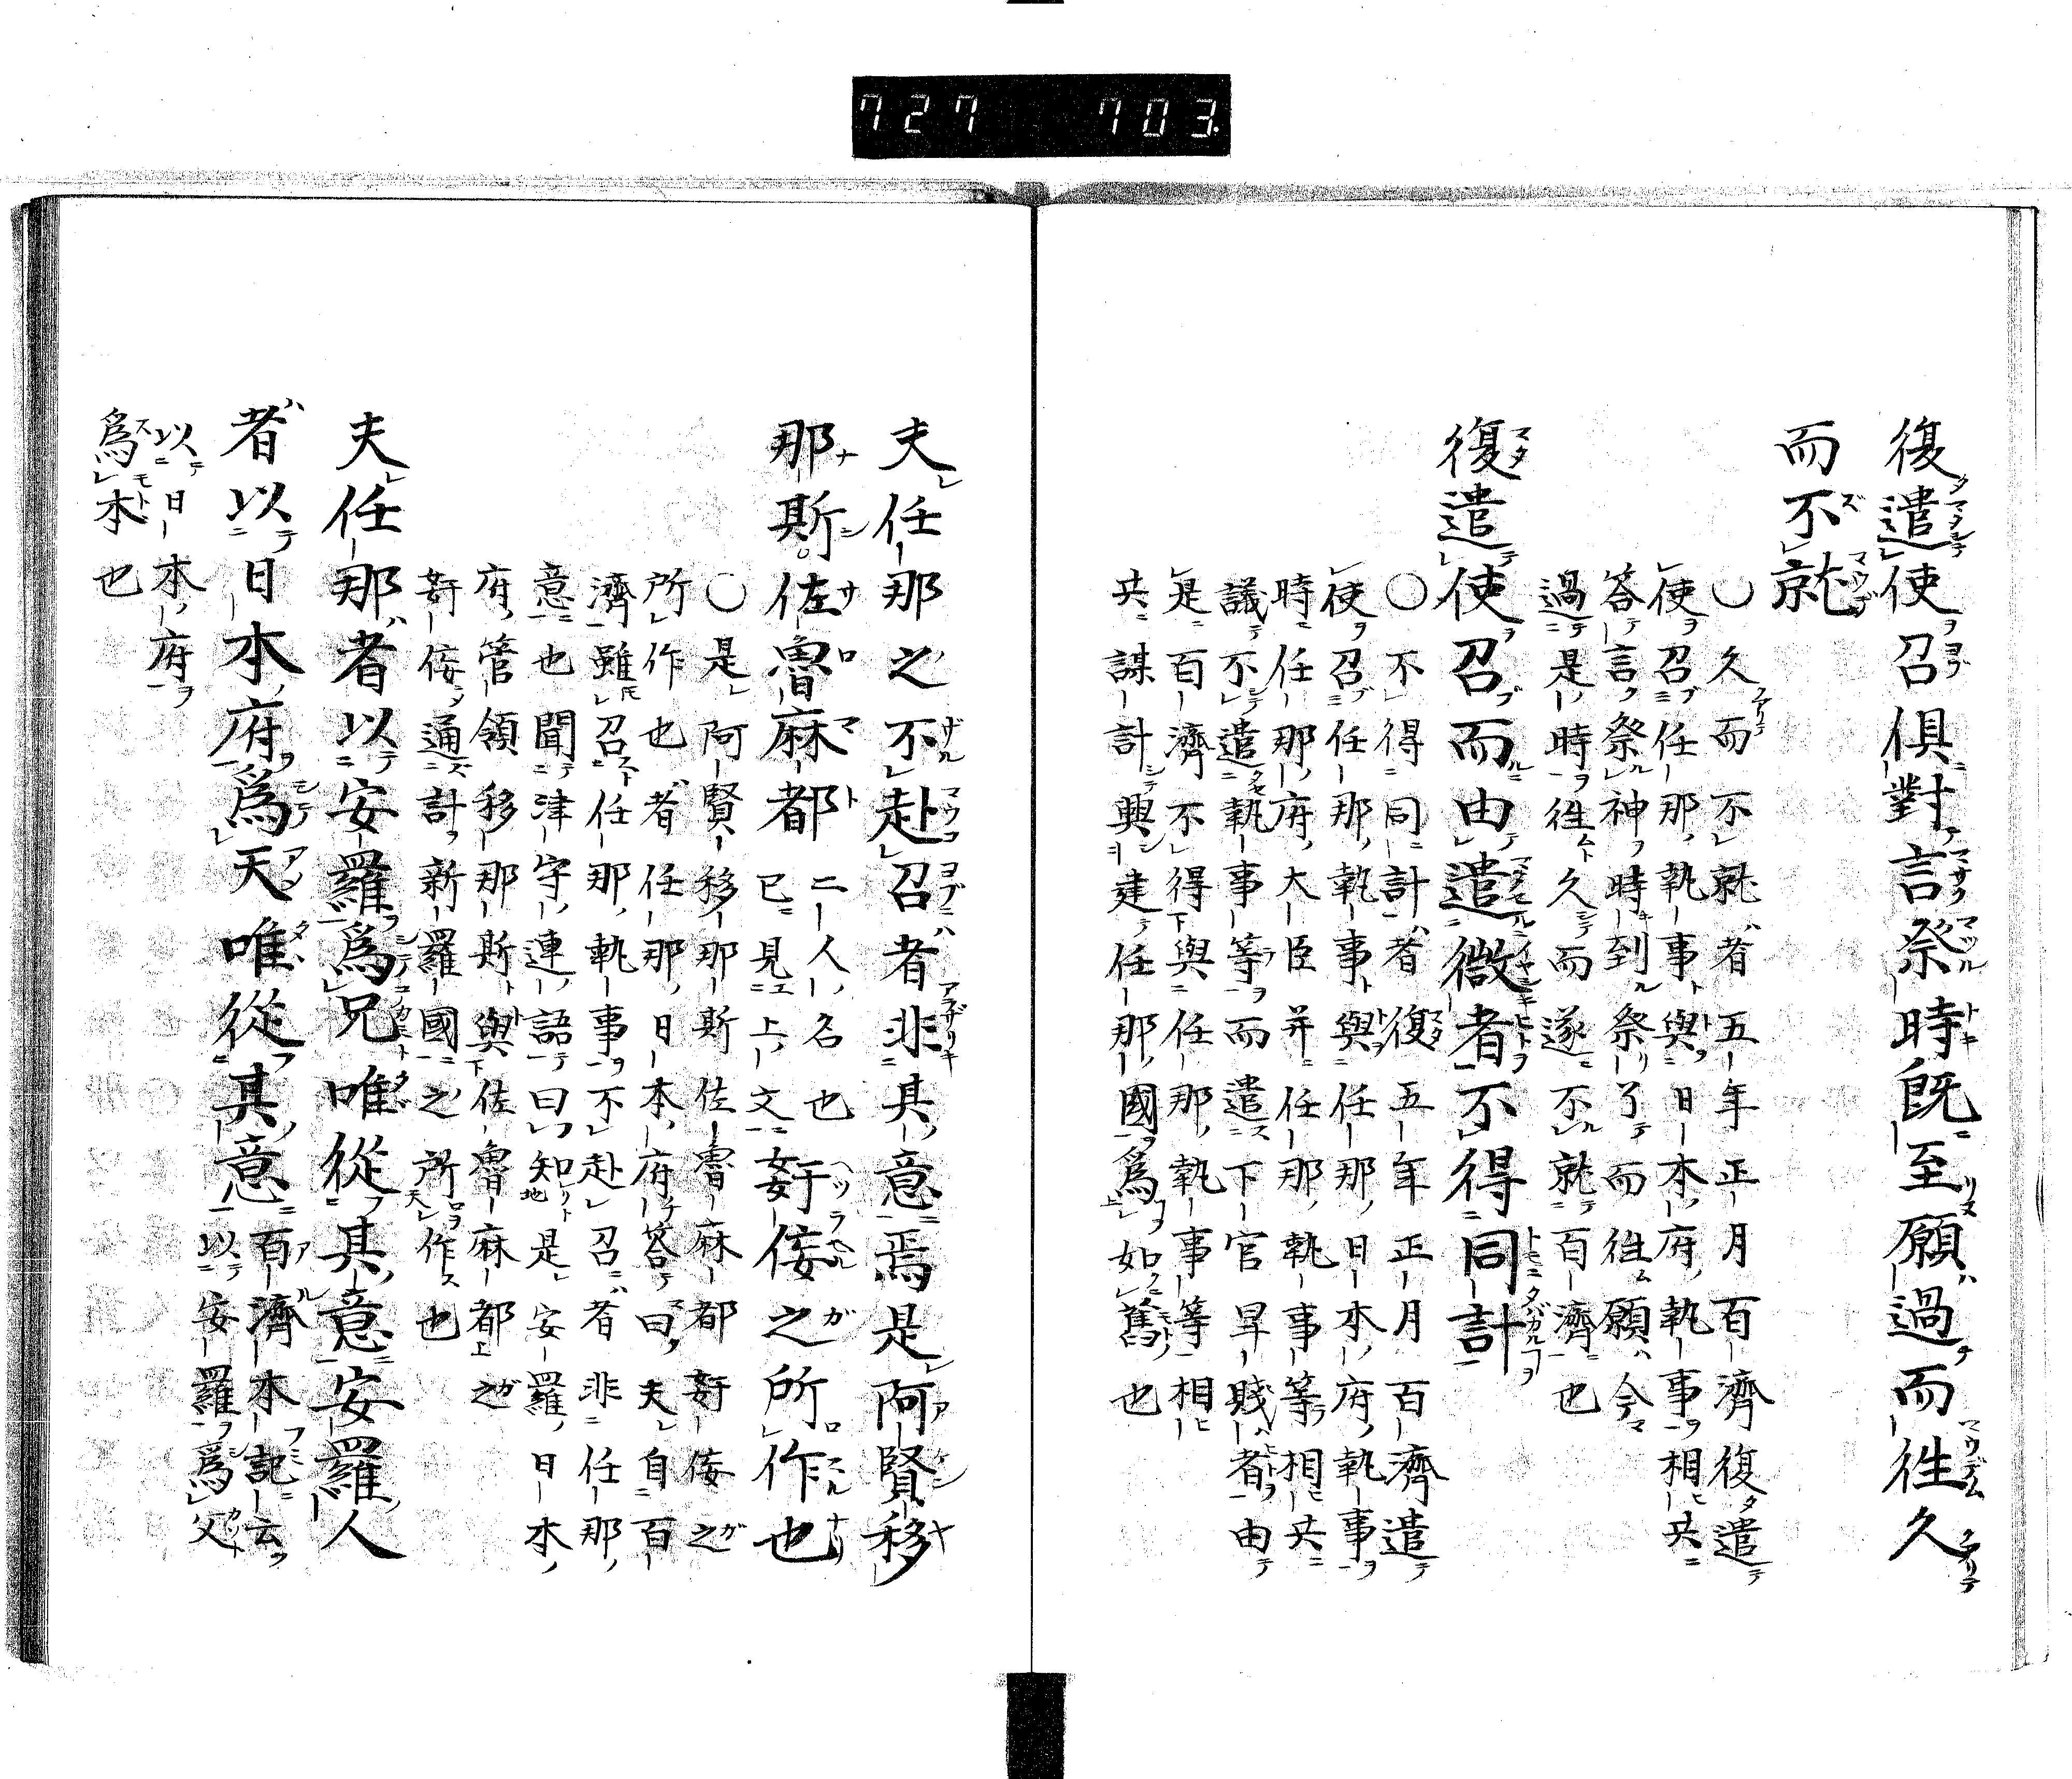 727 703.
復遣使召俱對言祭時既至願過而往久
而不就
○久而不就者五年正月百濟復遣
使召任那執事與日本府執事相共
答言祭神時到祭了而往願今
過是時往久而遂不就百濟也
復遣使召而由遣微者不得同計
○不得同計者復五年正月百濟遣
使召任那執事與任那日本府執事
時任那府大臣并任那執事等相共
議不遣執事等而遣下官卑賤者由
是百濟不得與任那執事等相
共謀計興建任那國為如舊也
夫任那之不赴召者非其意焉是阿賢移
那斯佐魯麻都二人名也已見上文姧佞之所作也
○是阿賢移那斯佐魯麻都姧佞之
所作也者任那日本府答曰夫自百
濟雖召任那執事不赴召者非任那
意也聞津守連語曰知是安羅日本
府管領移那斯與佐魯麻都之
姧佞通計新羅國之所作也
夫任那者以安羅為兄唯從其意安羅人
者以日本府為天唯從其意百濟本記云以安羅為父
以日本府
為本也